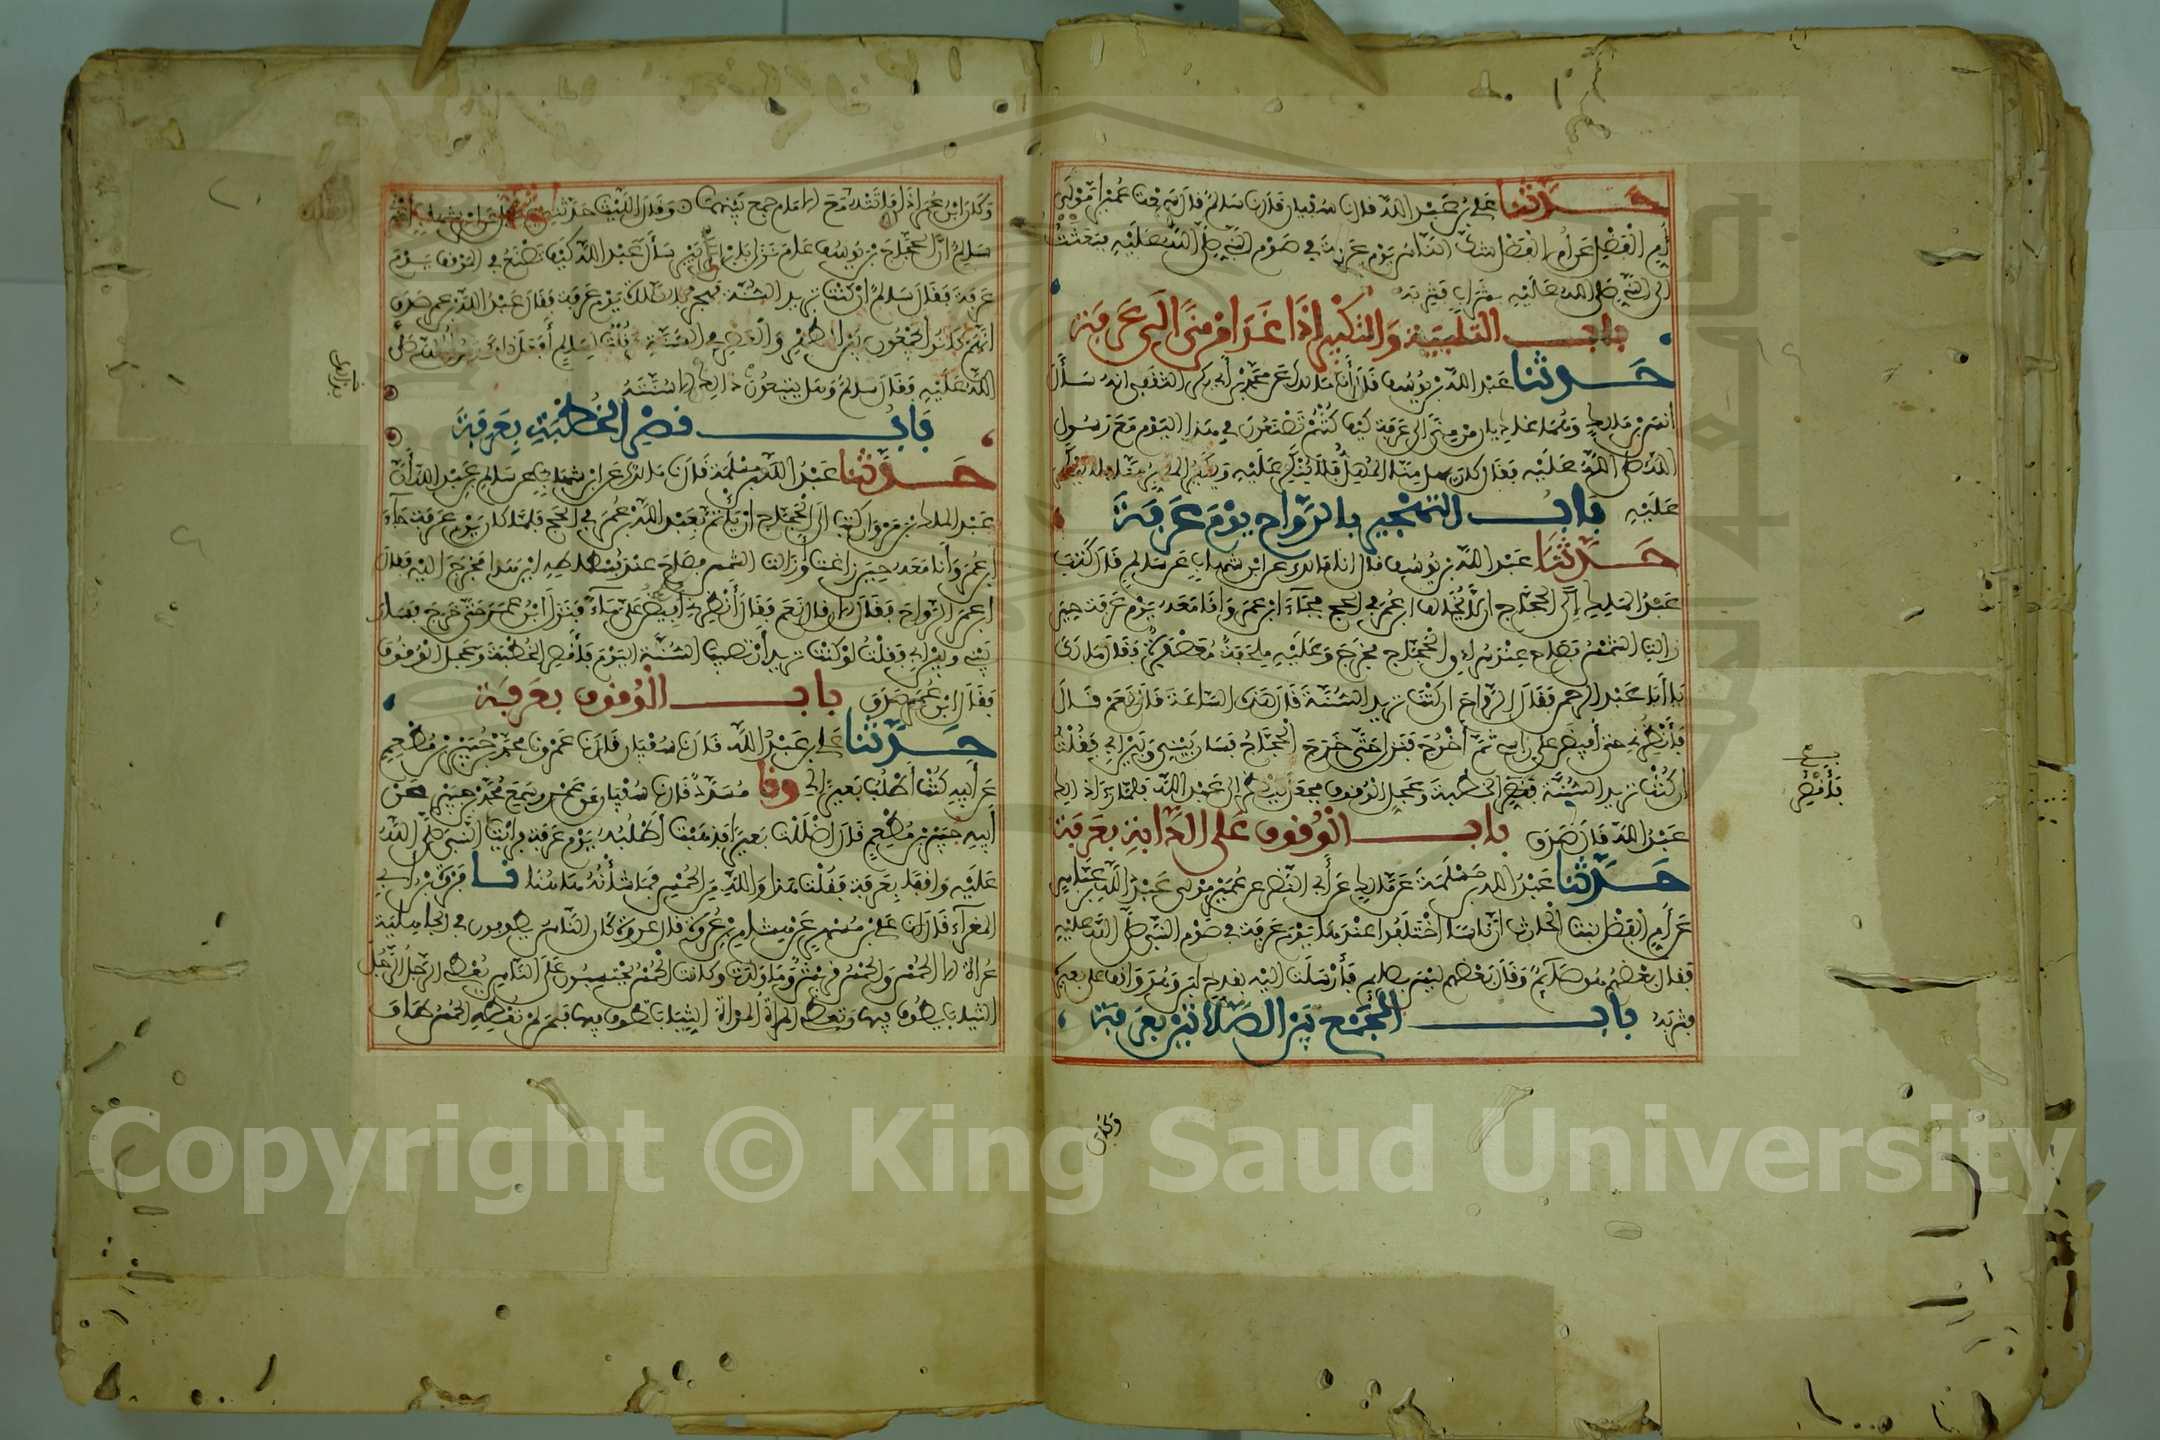 حدثنا علي بن عبد الله قال نا سفيان قال نا سالم قال سمعت عميرا مولى
أم الفضل عن أم الفضل شك الناس يوم عرفة في صوم النبي صلى الله عليه فبعثت
الى النبي صلى الله عليه بشراب فشربه
باب التلبية والتكبير اذا غدا من منى الى عرفة
حدثنا عبد الله بن يوسف قال أنا مالك عن محمد بن أبي بكر الثقفي انه سأل
انس بن مالك وهما غاديان من منى الى عرفة كيف كنتم تصنعون في هذا اليوم مع رسول
الله صلى الله عليه فقال كان يهل منا المهل فلا ينكر عليه ويكبر المكبر منا فلا ينكر
عليه باب التهجير بالرواح يوم عرفة
حدثنا عبد الله بن يوسف قال انا مالك عن ابن شهاب عن سالم قال كتب
عبد الملك إلى الحجاج ان لا يخالف ابن عمر في الحج فجاء ابن عمر وانا معه يوم عرفة حين
زالت الشمس فصاح عند سرادق الحجاج فخرج وعليه ملحفة معصفرة فقال ما لك
يا أبا عبد الرحمن فقال الرواح ان كنت تريد السنة قال هذه الساعة قال نعم قال
فأنظرني حتى أفيض على راسي ثم أخرج فنزل حتى خرج الحجاج فسار بيني وبين أبي فقلت
ان كنت تريد السنة فاقصر الخطبة وعجل الوقوف فجعل ينظر الى عبد الله فلما رءا ذلك
عبد الله قال صدق باب الوقوف على الدابة بعرفة
حدثنا عبد الله بن مسلمة عن مالك عن أبي النضر عن عمير مولى عبد الله بن عباس
عن أم الفضل بنت الحارث ان ناسا اختلفوا عندها يوم عرفة في صوم النبي صلى الله عليه
فقال بعضهم هو صائم وقال بعضهم ليس بصائم فأرسلت اليه بقدح لبن وهو واقف على بعيره
فشربه باب الجمع بين الصلاتين بعرفة
وكان ابن
وكان ابن عمر اذا فاتته مع الامام جمع بينهما وقال الليث حدثني عقيل عن ابن شهاب أخبرني
سالم ان الحجاج بن يوسف عام نزل بابن الزبير سأل عبد الله كيف تصنع في الموقف يوم
عرفة فقال سالم ان كنت تريد السنة فهجر بالصلاة يوم عرفة فقال عبد الله بن عمر صدق
انهم كانوا يجمعون بين الظهر والعصر في السنة فقلت لسالم أفعل ذلك رسول الله صلى
الله عليه فقال سالم وهل يتبعون ذلك الا سنته
باب قصر الخطبة بعرفة
حدثنا عبد الله بن مسلمة قال نا مالك عن ابن شهاب عن سالم بن عبد الله أن
عبد الملك بن مروان كتب الى الحجاج ان يأتم بعبد الله بن عمر في الحج فلما كان يوم عرفة جاء
ابن عمر وأنا معه حين زاغت أو زالت الشمس فصاح عند فسطاطه اين هذا فخرج اليه فقال
ابن عمر الرواح فقال الان قال نعم فقال أنظرني أفيض علي ماء فنزل ابن عمر حتى خرج فسار
بيني وبين أبي فقلت لو كنت تريد أن تصيب السنة اليوم فأقصر الخطبة وعجل الوقوف
فقال ابن عمر صدق باب الوقوف بعرفة
حدثنا علي بن عبد الله قال نا سفيان قال نا عمرو نا محمد بن جبير بن مطعم
عن أبيه كنت أطلب بعيرا لي ونا مسدد قال نا سفيان عن عمرو سمع محمد بن جبير عن
أبيه جبير بن مطعم قال أضللت بعيرا فذهبت أطلبه يوم عرفة فرأيت النبي صلى الله
عليه واقفا بعرفة فقلت هذا والله من الحمس فما شأنه هاهنا نا فروة بن أبي
المغراء قال نا علي بن مسهر عن هشام بن عروة قال عروة كان الناس يطوفون في الجاهلية
عراة الا الحمس والحمس قريش وما ولدت وكانت الحمس يحتسبون على الناس يعطي الرجل الرجل
الثياب يطوف فيها وتعطي المرأة المرأة الثياب تطوف فيها فمن لم تعطه الحمس طاف